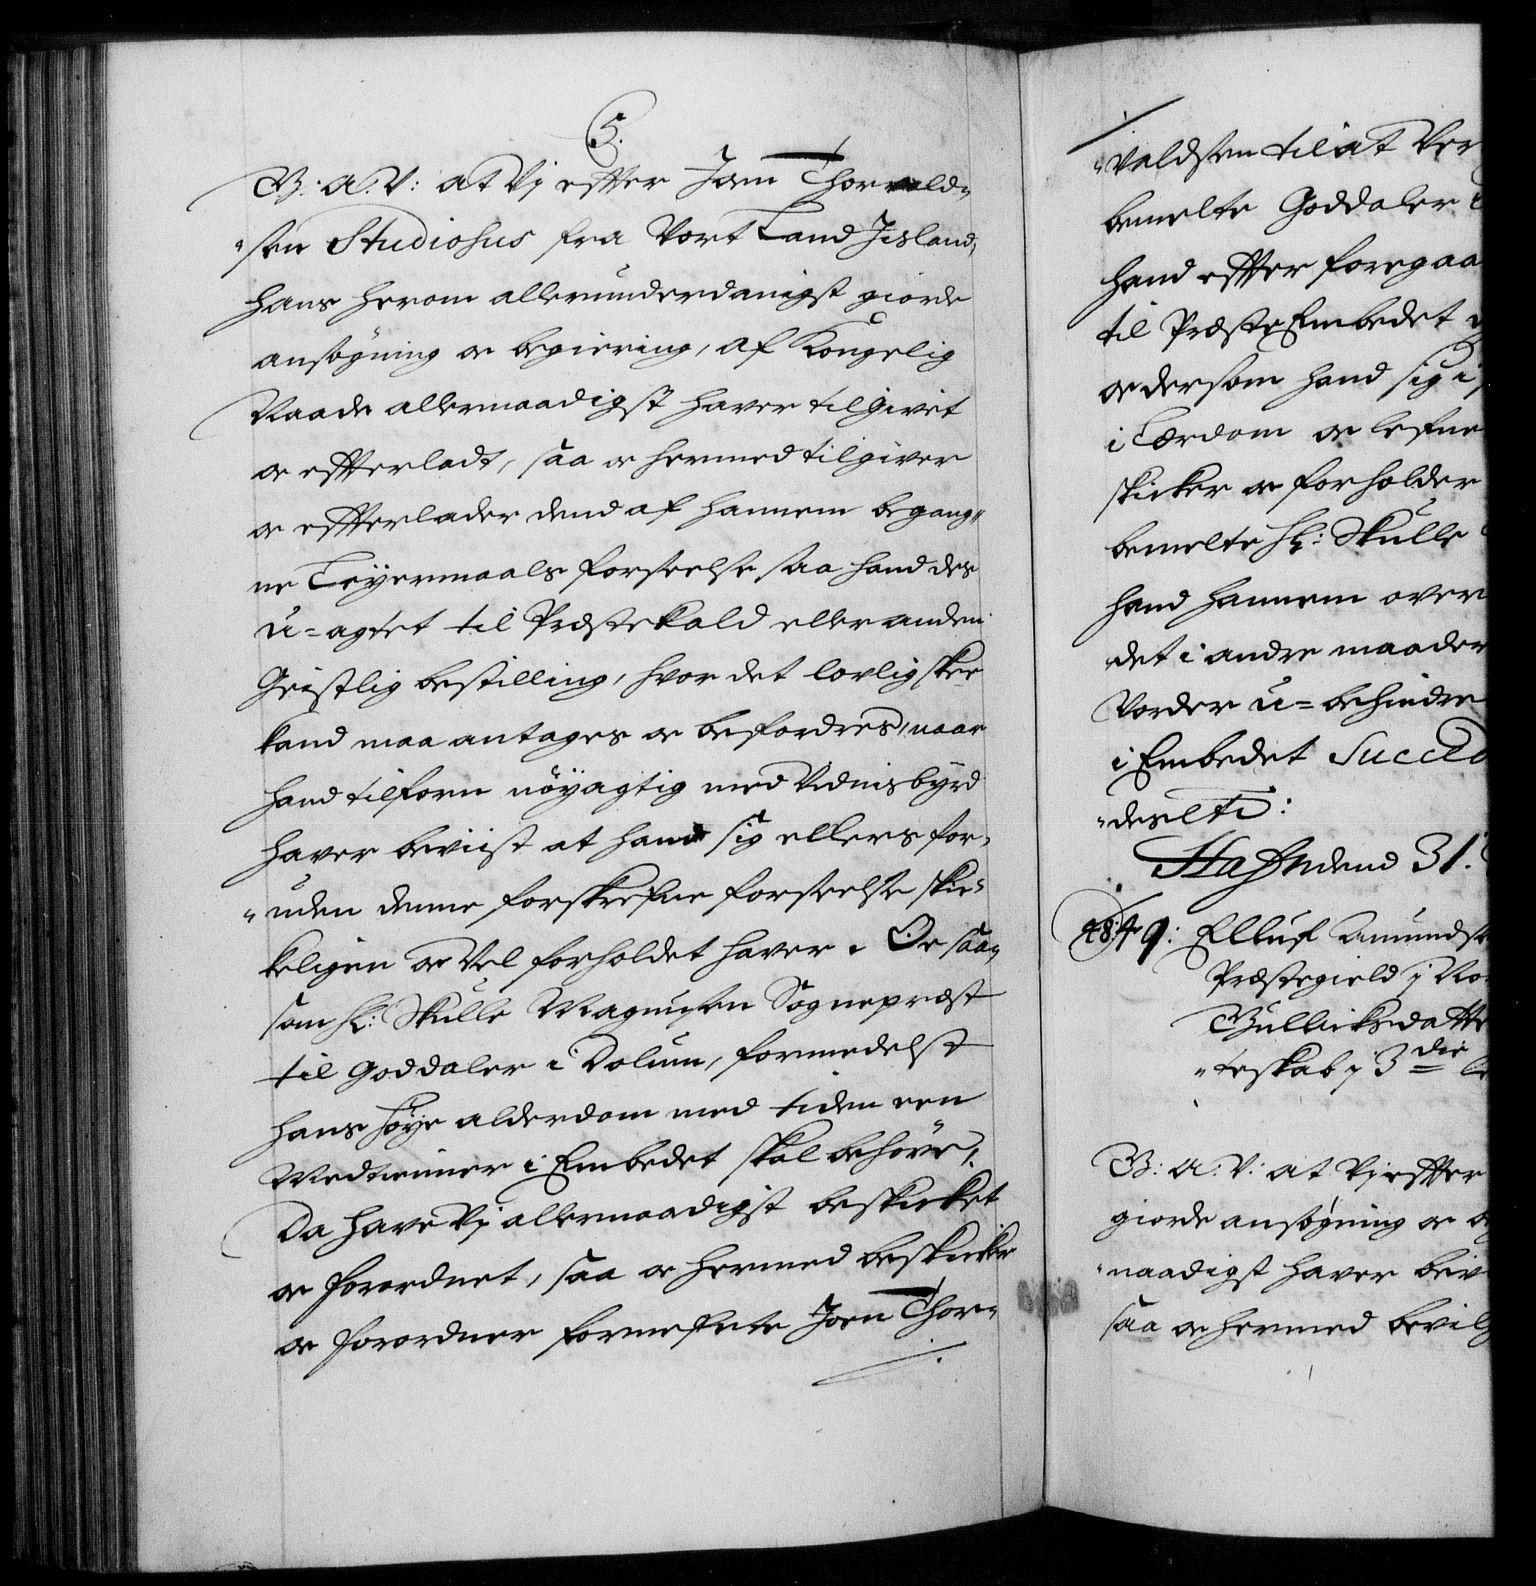 5.
G: A: V: at Vj efter Joen Thorvald„
„sen Studiosus fra Vort Land Jisland,
hans herom allerunderdanigst giorde
ansögning oc begiering, af Kongelig
Naade allernaadigst haver tilgivet
oc efterladt, saa oc hermed tilgiver
oc efterlader dend af hannem begang„
ne Leyermaals forseelse saa hand des
u=agtet til Præstekald eller anden
Geistlig bestilling, hvor det lovlig skee
kand maa antages oc befordres, naar
hand tilforn nöyagtig med Vidnisbyrd
haver beviist at hand sig ellers for„
„uden denne forskrefne forseelse skic„
keligen oc Vel forholdet haver. Oc saa„
som Hr: Skulle Magnussen Sognepræst
til Goddaler i Dolum, formedelst
hans höye alderdom med tiden een
Medtiener i Embedet skal behöve,
Da have Vj allernaadigst beskicket
oc forordnet, saa oc hermed beskicker
oc forordner fornefnte Joen Thor„
„valdsen til at Ver
bemelte Goddaler
hand efter foregaa
til Præste Embedet
oc dersom hand sig i
i Lærdom oc lefne
skicker oc forholder
bemelte Hr: Skulle
hand hannem over
det i andre maader
Vorder u=behindre
i Embedet Succed
Hafn dend 31.
Elluf Amundse
Præstegield j No
Gullicksdatte
„teskab j 3die le
G: A: V: at Vj efter
giorde ansögning oc be
„naadigst haver bev
saa oc hermed bevilg